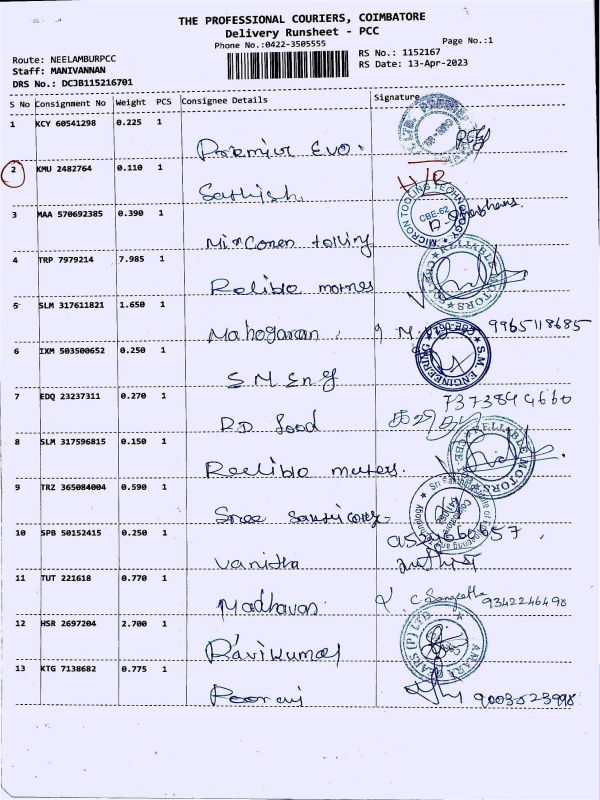 THE PROFESSIONAL COURIERS, COIMBATORE
Delivery Runsheet - PCC
Phone No.:0422-3505555
Page No.:1
Route: NEELAMBURPCC
RS No.: 1152167
Staff: MANIVANNAN
RS Date: 13-Apr-2023
DRS No.: DCJB115216701
S No Consignment No Weight PCS Consignee Details Signature
1 KCY 60541298 0.225 1
Premier Evo.
2 KMU 2482764 0.110 1
H/R
Sathish.
3 MAA 570692385 0.390 1
MICRON TOOLING TECHNOLOGY
CBE-62
4 TRP 7979214 7.985 1
RELIABLE MOTORS
5 SLM 317611821 1.650 1
9965118685
6 IXM 503500652 0.250 1
S.M. ENGINEERING
S.M Eng
7 EDQ 23237311 0.270 1
7373894660
R.D. food
8 SLM 317596815 0.150 1
RELIABLE MOTORS
9 TRZ 365084004 0.590 1
Sree
10 SPB 50152415 0.250 1
Vanitha
11 TUT 221618 0.770 1
C. Sangeetha 9342246498
Madhavan
12 HSR 2697204 2.700 1
Ravikumar
13 KTG 7138682 0.775 1